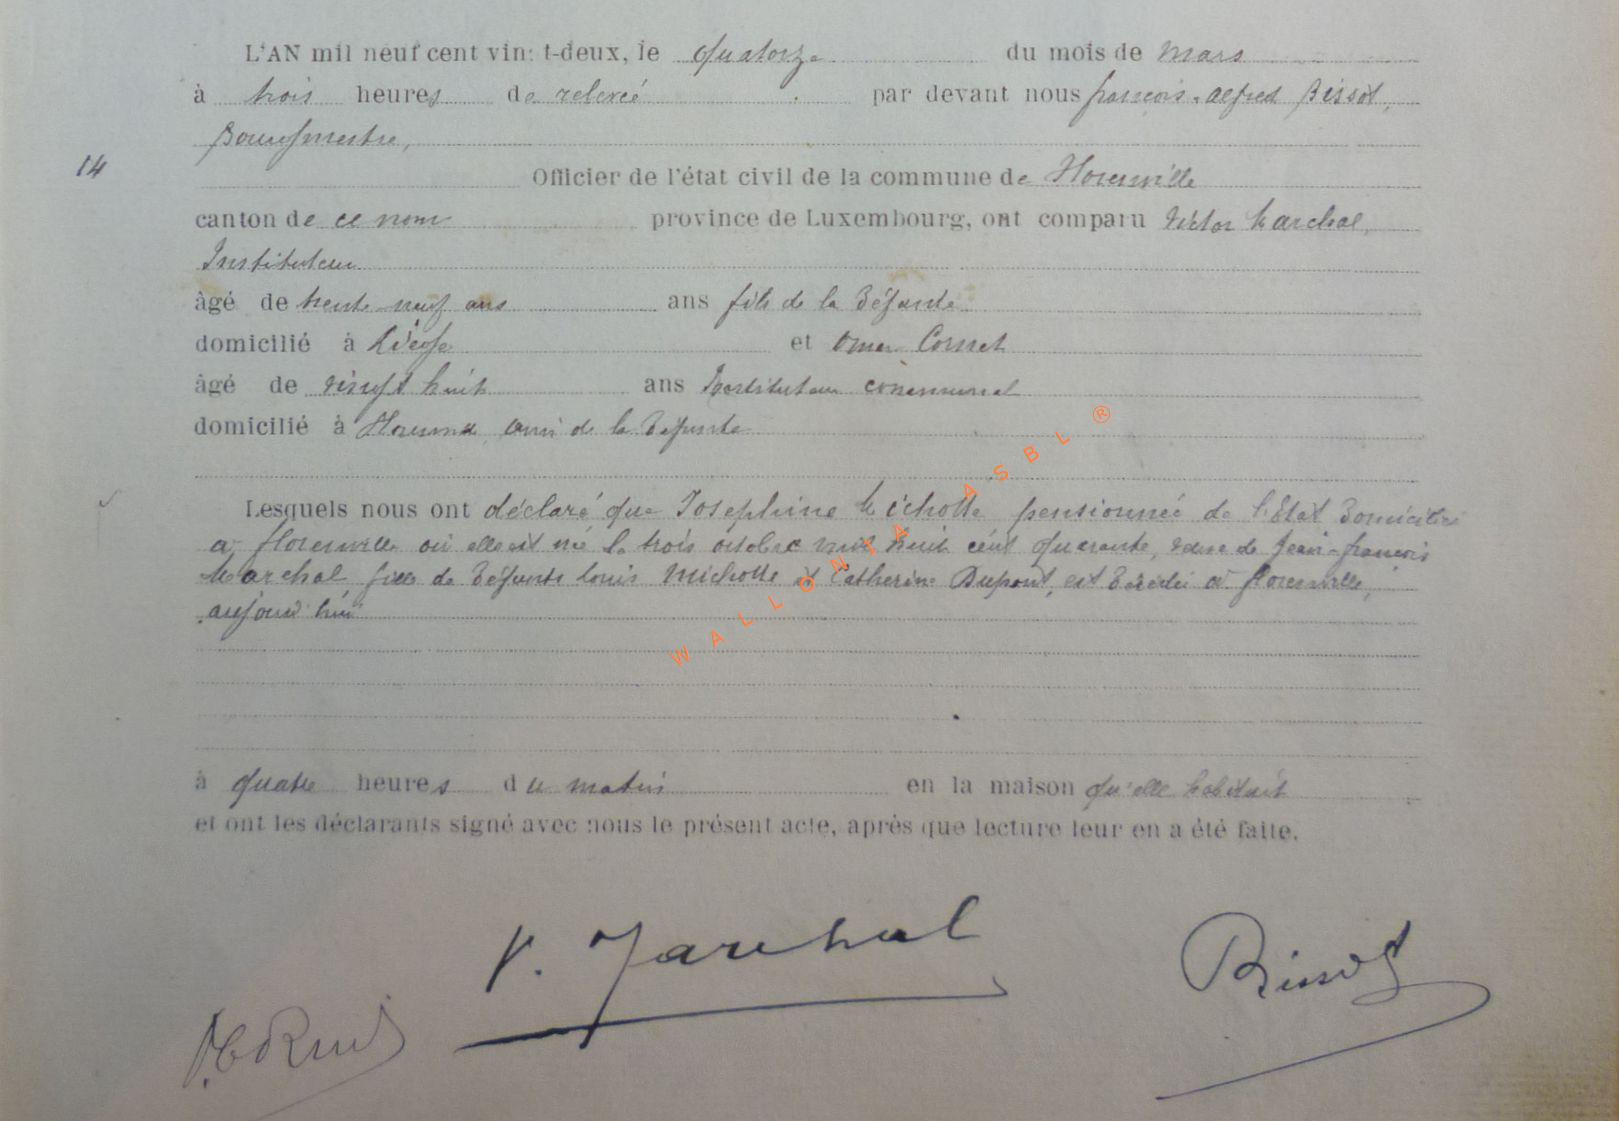 L'AN mil neuf cent vingt-deux, le quatorze du mois de mars
à trois heures de relevée par devant nous françois-alfred Bissot,
Bourgmestre,
14
Officier de l'état civil de la commune de Florenville
canton de ce nom province de Luxembourg, ont comparu Victor Marchal,
Instituteur
âgé de trente neuf ans ans fils de la défunte
domicilié à Liège et Omer Cornet
âgé de vingt huit ans Instituteur communal
domicilié à ami de la défunte
Lesquels nous ont déclaré que Josephine Michotte pensionnée de l'Etat domiciliée
à florenville où elle est née le trois octobre mil huit cent quarante, veuve de Jean-françois
Marchal fille de défunts louis Michotte et Catherine Dupont, est décédée à florenville,
aujourd'hui
à quatre heures du matin en la maison qu'elle habitait
et ont les déclarants signé avec nous le présent acte, après que lecture leur en a été faite.
V. Marchal
Bissot
WALLONIA ASBL ®